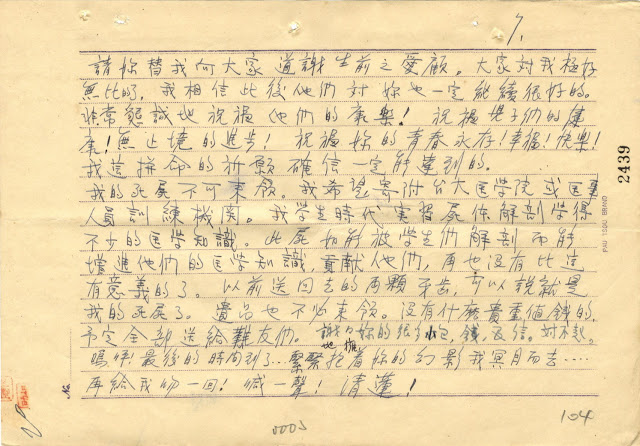 7.
請妳替我向大家道謝生前之愛顧。大家對我極好
無比的,我相信此後他們對妳也一定能續很好的。
非常懇誠地祝福他們的康樂!祝福兒子們的健
康!無止境的進步!祝福妳的青春永存!幸福!快樂!
我這拼命的祈願確信一定能達到的。
我的死屍不可來領。我希望寄附台大医学院或医事
人員訓練機関。我学生時代実習屍体解剖学得
不少的医学知識。此屍如能被学生們解剖而能
增進他們的医学知識,貢献他們,再也沒有比這
有意義的了。以前送回去的兩顆牙齒,可以說就是
我的死屍了。遺品也不必來領。沒有什麼貴重值錢的,
予定全部送給難友們。謝々妳的包,錢,及信。対不起。
嗚呼!最後的時間到了…緊緊地抱擁著妳的幻影我冥目而去……
再給我吻一回!喊一聲!清蓮!
No.
0005
104
2439